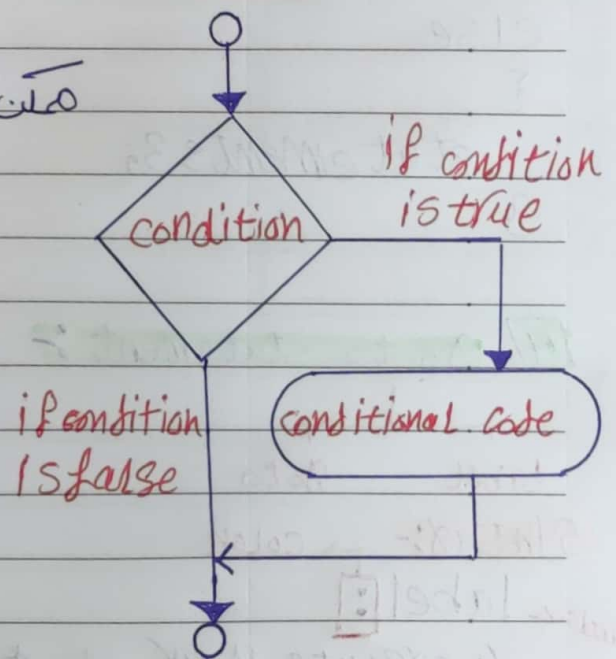 condition
if condition
is true
if condition
is false
conditional code
label :